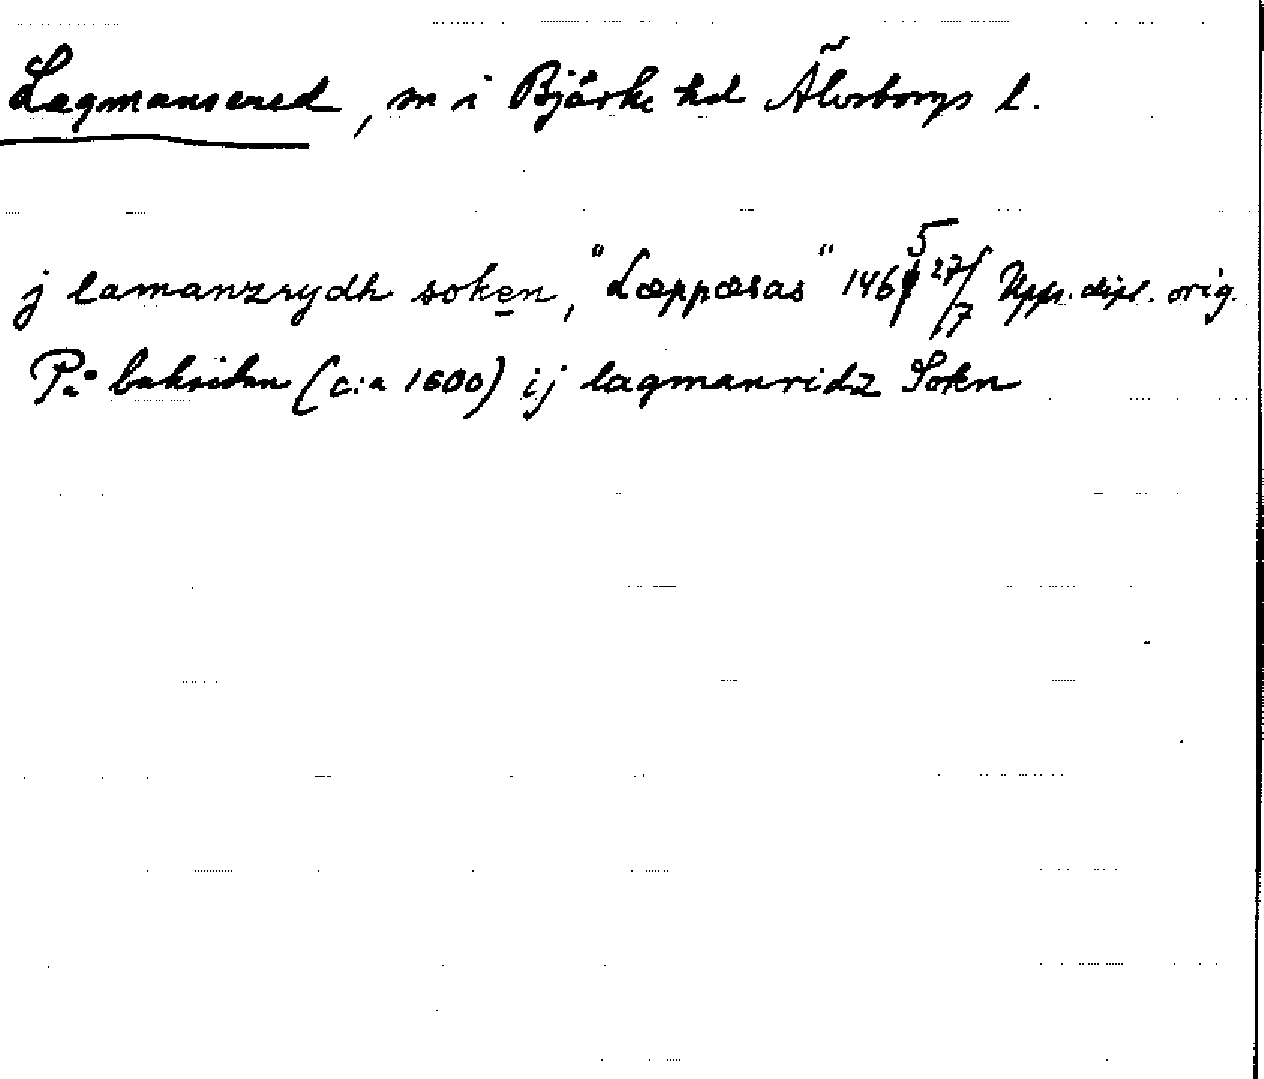 Lagmansered, sn i Bjärke hd Älvsborgs l.
j lamanzrydh soken, "Læppæsas" 1465 27/7 Upps. dipl. orig.
På baksidan (c:a 1600) ij lagmanridz Sokn